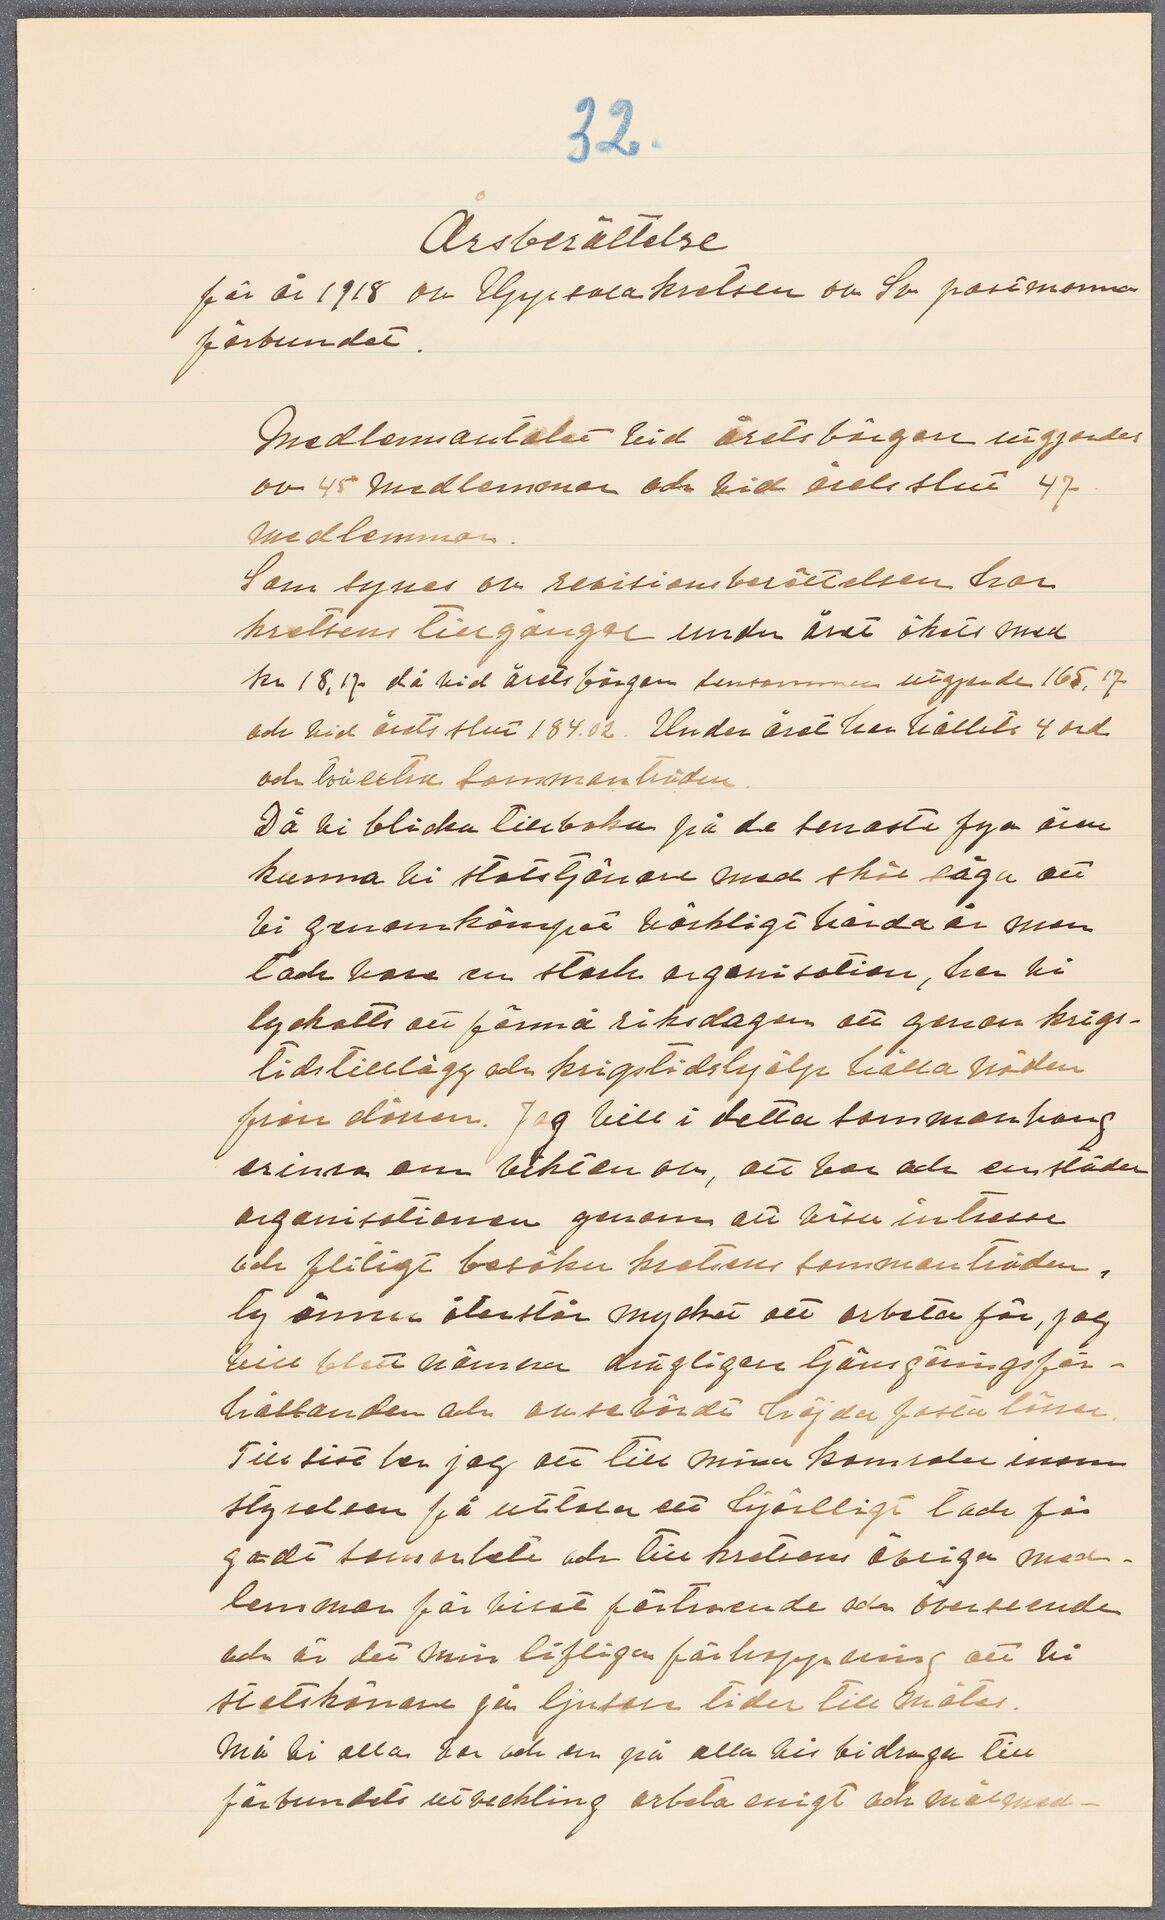 32.
Årsberättelse
för år 1918 av Uppsalakretsen av Sv postmanna
förbundet.
Medlemsantalet vid årets början utgjordes
av 45 medlemmar och vid årets slut 47
medlemmar.
Som synes av revisionsberättelsen har
kretsens tillgångar under året ökats med
kr 18,17 då vid årets början densamma utgjorde 165,17
och vid årets slut 184.02. Under året har hållits 4 ord
och två extra sammanträden.
Då vi blicka tillbaka på de senaste fyra åren
kunna vi statstjänare med skäl säga att
vi genomkämpat värkligt hårda år men
tack vare en stark organisation, har vi
lyckatts att förmå riksdagen att genom krigs-
tidstillägg och krigstidshjälp hålla nöden
från dörren. Jag vill i detta sammanhang
erinra om vikten av, att var och en stöder
organisationen genom att visa intresse
och flitigt besöka kretsens sammanträden,
ty ännu återstår mycket att arbeta för, jag
vill blott nämna drägligare tjänsgöringsför-
hållanden och avsevärdt höjda fasta löner.
Till sist ber jag att till mina kamrater inom
styrelsen få uttala ett hjärtligt tack för
godt samarbete och till kretsens övriga med-
lemmar för visat förtroende och överseende
och är det min lifliga förhoppning att vi
statstjänare gå ljusare tider till mötes.
Må vi alla var och en på alla vis bidraga till
förbundets utveckling arbeta enigt och målmed-